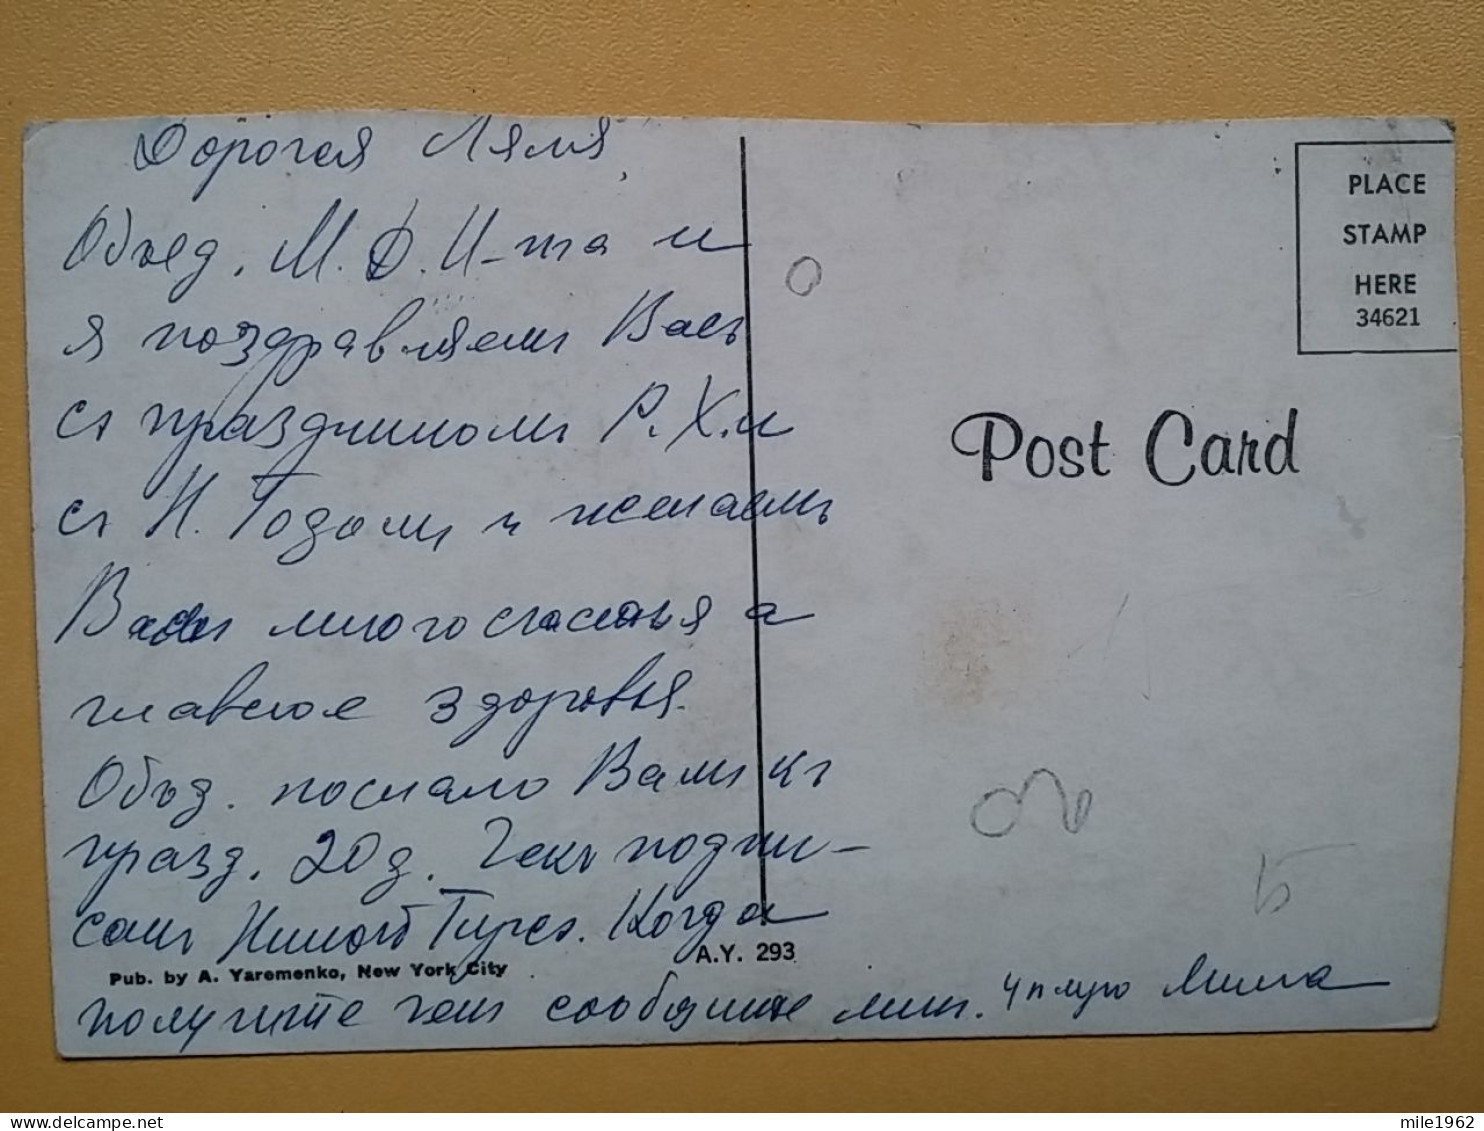 Дорогая Ляля,
Объед. М. Д. И-та и
я поздравляемъ Васъ
съ праздникомъ Р. Х. и
съ Н. Годомъ и желаемъ
Вамъ много счастья а
главное здоровья.
Объед. послало Вамъ къ
празд. 20 д. Чекъ подпи-
санъ Ниной. Когда
получите чекъ сообщите мнѣ. Мила
PLACE
STAMP
HERE
34621
Post Card
A.Y. 293
Pub. by A. Yaremenko, New York City
mile1962